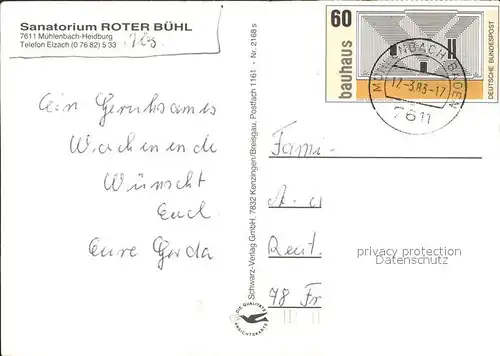 Sanatorium ROTER BÜHL
7611 Mühlenbach-Heidburg
Telefon Elzach (0 76 82) 5 33
Ein Geruhsames
Wochenende
Wünscht
Euch
Eure Gerda
Schwarz-Verlag GmbH. 7832 Kenzingen/Breisgau. Postfach 1161 · Nr. 2168 s
DIE QUALITÄTS
ANSICHTSKARTE
60
bauhaus
DEUTSCHE BUNDESPOST
MÜHLENBACH, BADEN
17.-3.83-17
7611
Fami
Reut.
78 Fr
privacy protection
Datenschutz